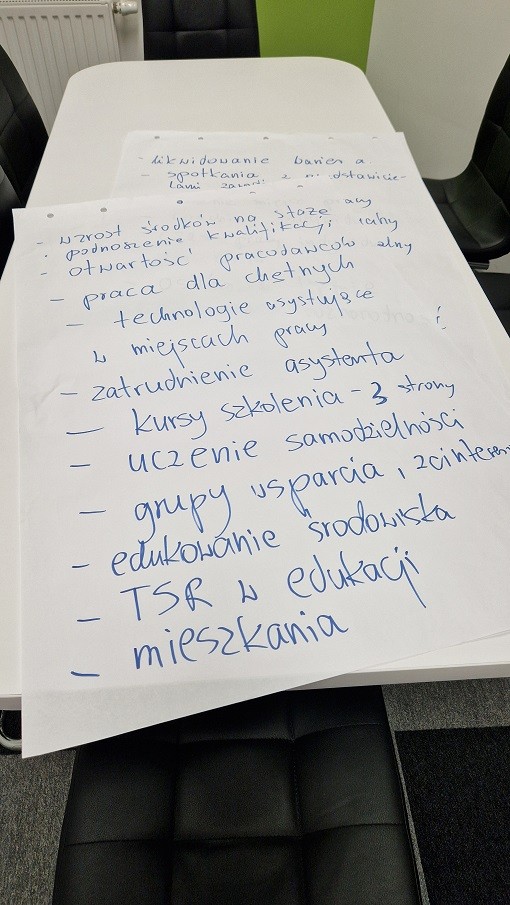 - likwidowanie barier a
- spotkania z
- wzrost środków na staże
- podnoszenie kwalifikacji
- otwartość pracodawców
- praca dla chętnych
- technologie asystujące
w miejscach pracy
- zatrudnienie asystenta
- kursy szkolenia - 3 strony
- uczenie samodzielności
- grupy wsparcia i zainteresow
- edukowanie środowiska
- TSR w edukacji
- mieszkania